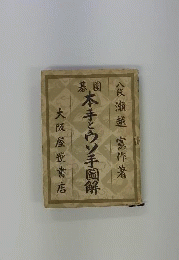 八段 瀬越憲作著
囲碁
本手とウソ手図解
大阪屋號書店